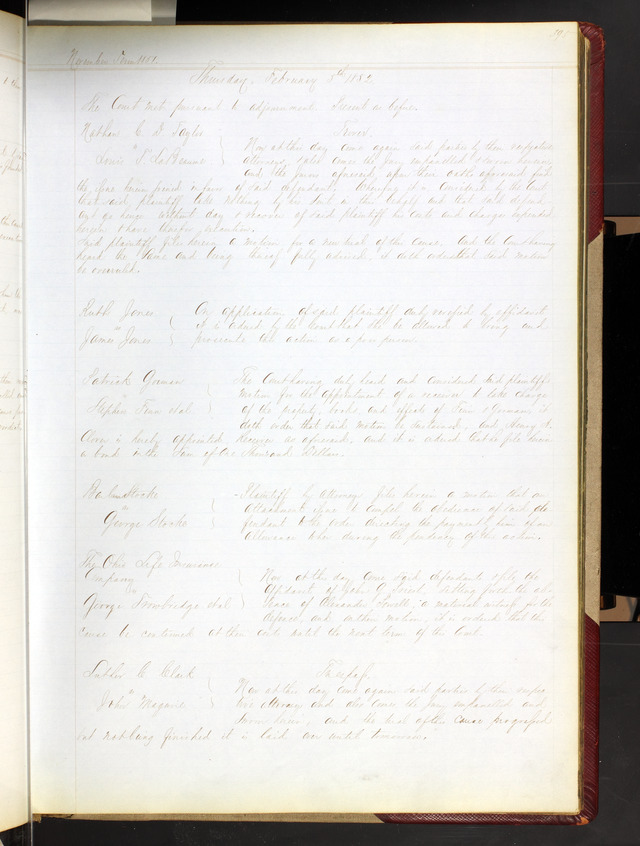 November Term 1881
Thursday, February 8th 1882
The Court met pursuant to adjournment. Present as before.
Nathan C. D. Taylor
vs
Louis La Beaume
Trover
Now at this day come again said parties by their respective
attorneys, also come the jury empanelled sworn herein,
and the jurors aforesaid, upon their oaths aforesaid find
the issue herein joined in favor of said defendant. Wherefore it is considered by the Court
that said plaintiff take nothing by his suit in this behalf and that said defend-
ant go hence without day & recover of said plaintiff his costs and charges expended
herein & have therefor execution.
Said plaintiff files herein a motion for a new trial of this cause. And the Court having
heard the same and being thereof fully advised it doth order that said motion
be overruled.
Ruth Jones
vs
James Jones
On application of said plaintiff duly verified by affidavit
it is ordered by the Court that she be allowed to bring and
prosecute this action as a poor person.
Patrick Gorman
vs
Stephen Finn et al.
The Court having duly heard and considered said plaintiff's
motion for the appointment of a receiver to take charge
of the property, books, and effects of Finn & Gorman it
doth order that said motion be sustained, and Henry A.
Clover is hereby appointed Receiver as aforesaid, and it is ordered that he file herein
a bond in the sum of Two Thousand Dollars.
Storke
vs
George Storke
Plaintiff by attorney files herein a motion that an
attachment issue to compel the obedience of said de-
fendant to the order directing the payment from of an
allowance to her during the pendency of this action.
The Ohio Life Insurance
Company
vs
George Trowbridge et al
Now at this day come said defendants & file the
affidavit of John G. setting forth the ab-
sence of Alexander a material witness for the
defence, and on their motion, it is ordered that this
cause be continued at their costs until the next term of the Court.
Luther C. Clark
vs
John Maguire
Trespass.
Now at this day come again said parties by their respec-
tive attorneys and also come the jury empanelled and
sworn herein, and the trial of this cause progressed
but not being finished it is laid over until tomorrow.